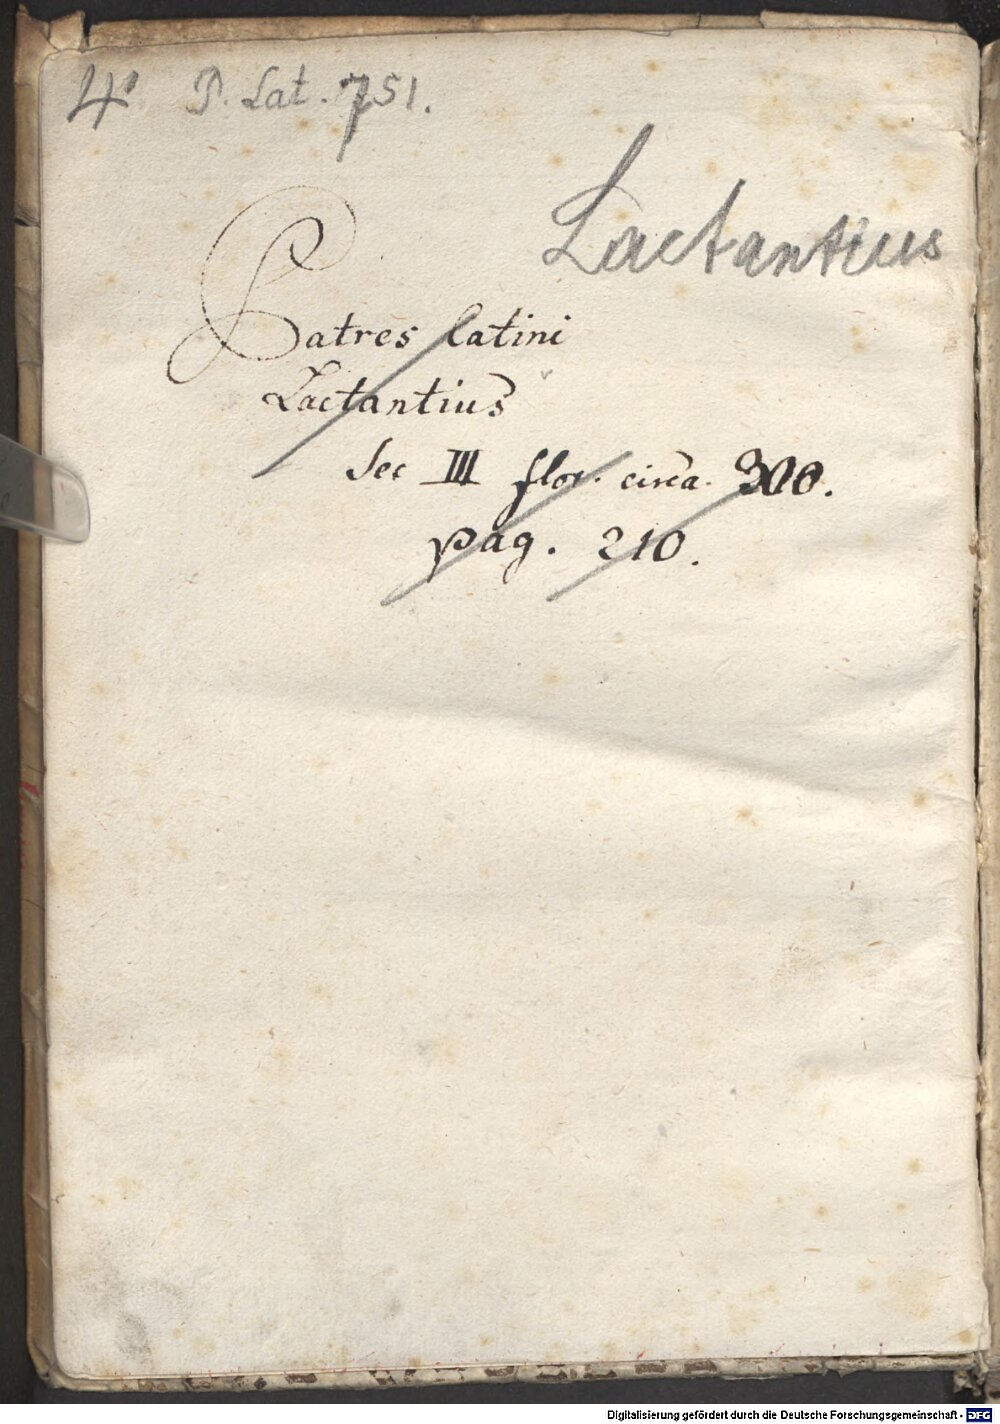 4° P. lat. 751.
Lactantius
Patres latini
Lactantius
Sec III flor. circa. 300.
pag. 210.
Digitalisierung gefördert durch die Deutsche Forschungsgemeinschaft - DFG